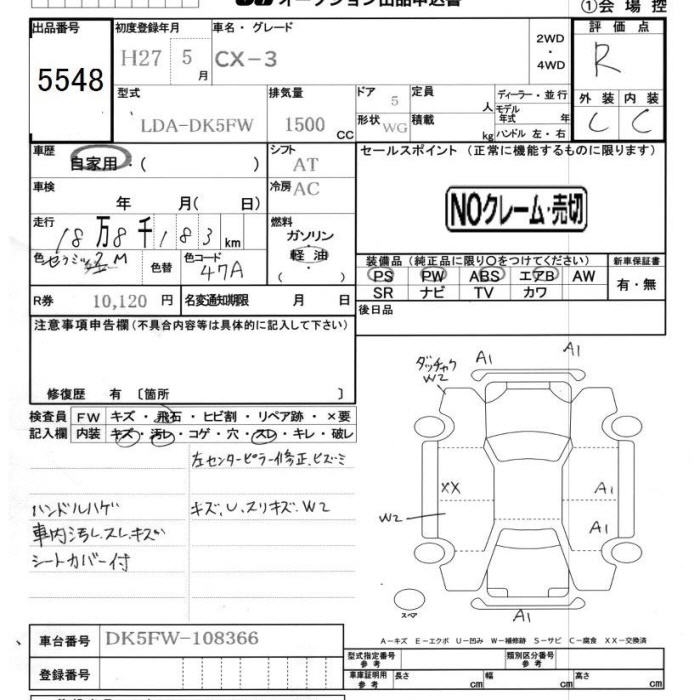 オークション出品申込書
①会場控
出品番号 初度登録年月 車名・グレード 2WD 評価点
5548 H27 5 月 CX-3 ・4WD R
型式 排気量 ドア 5 定員 人 ディーラー・並行 外装 内装
LDA-DK5FW 1500 CC 形状 WG 積載 kg モデル年式 年 C C
ハンドル 左・右
車歴 シフト セールスポイント (正常に機能するものに限ります)
自家用・( ) AT
車検 冷房 AC
年 月( 日) NOクレーム・売切
走行 燃料
18万8千183 km ガソリン
色 色替 色コード 軽油 装備品(純正品に限り○をつけてください) 新車保証書
セラミック M 47A ( ) PS PW ABS エアB AW 有・無
SR ナビ TV カワ
R券 10,120 円 名変通知期限 月 日 後日品
注意事項申告欄(不具合内容等は具体的に記入して下さい)
修復歴 有 〔箇所 〕
検査員 FW キズ・飛石・ヒビ割・リペア跡・×要
記入欄 内装 キズ・汚レ・コゲ・穴・スレ・キレ・破レ
左センターピラー修正、ヒズミ
ハンドルハゲ キズ、U、スリキズ、W2
車内汚レスレキズ
シートカバー付
A1 A1
ダッチャク
W2
XX A1
W2 A1
スペア A1
A-キズ E-エクボ U-凹み W-補修跡 S-サビ C-腐食 XX-交換済
車台番号 DK5FW-108366
型式指定番号 参考 類別区分番号 参考
登録番号 車庫証明用 参考 長さ cm 幅 cm 高さ cm